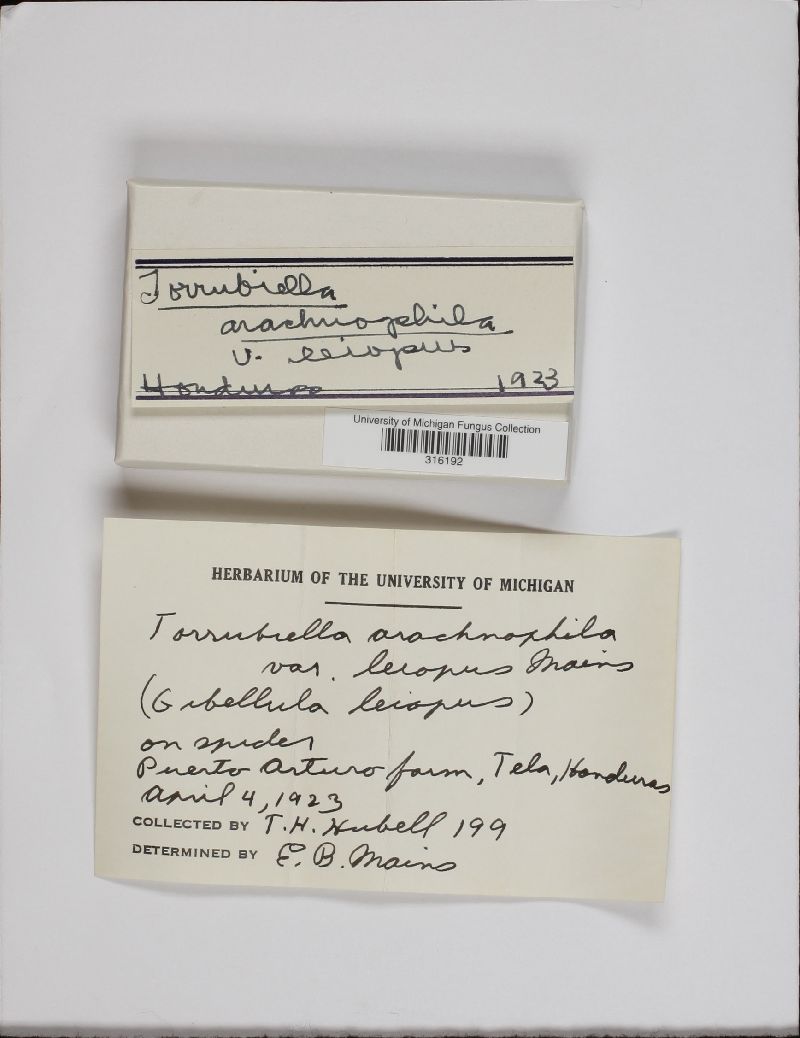 Torrubiella
arachnophila
v. leiopus
Honduras 1923
University of Michigan Fungus Collection
316192
HERBARIUM OF THE UNIVERSITY OF MICHIGAN
Torrubiella arachnophila
var. leiopus Mains
(Gibellula leiopus)
on spider
Puerto Arturo farm, Tela, Honduras
April 4, 1923
COLLECTED BY T.H. Hubell 199
DETERMINED BY E. B. Mains